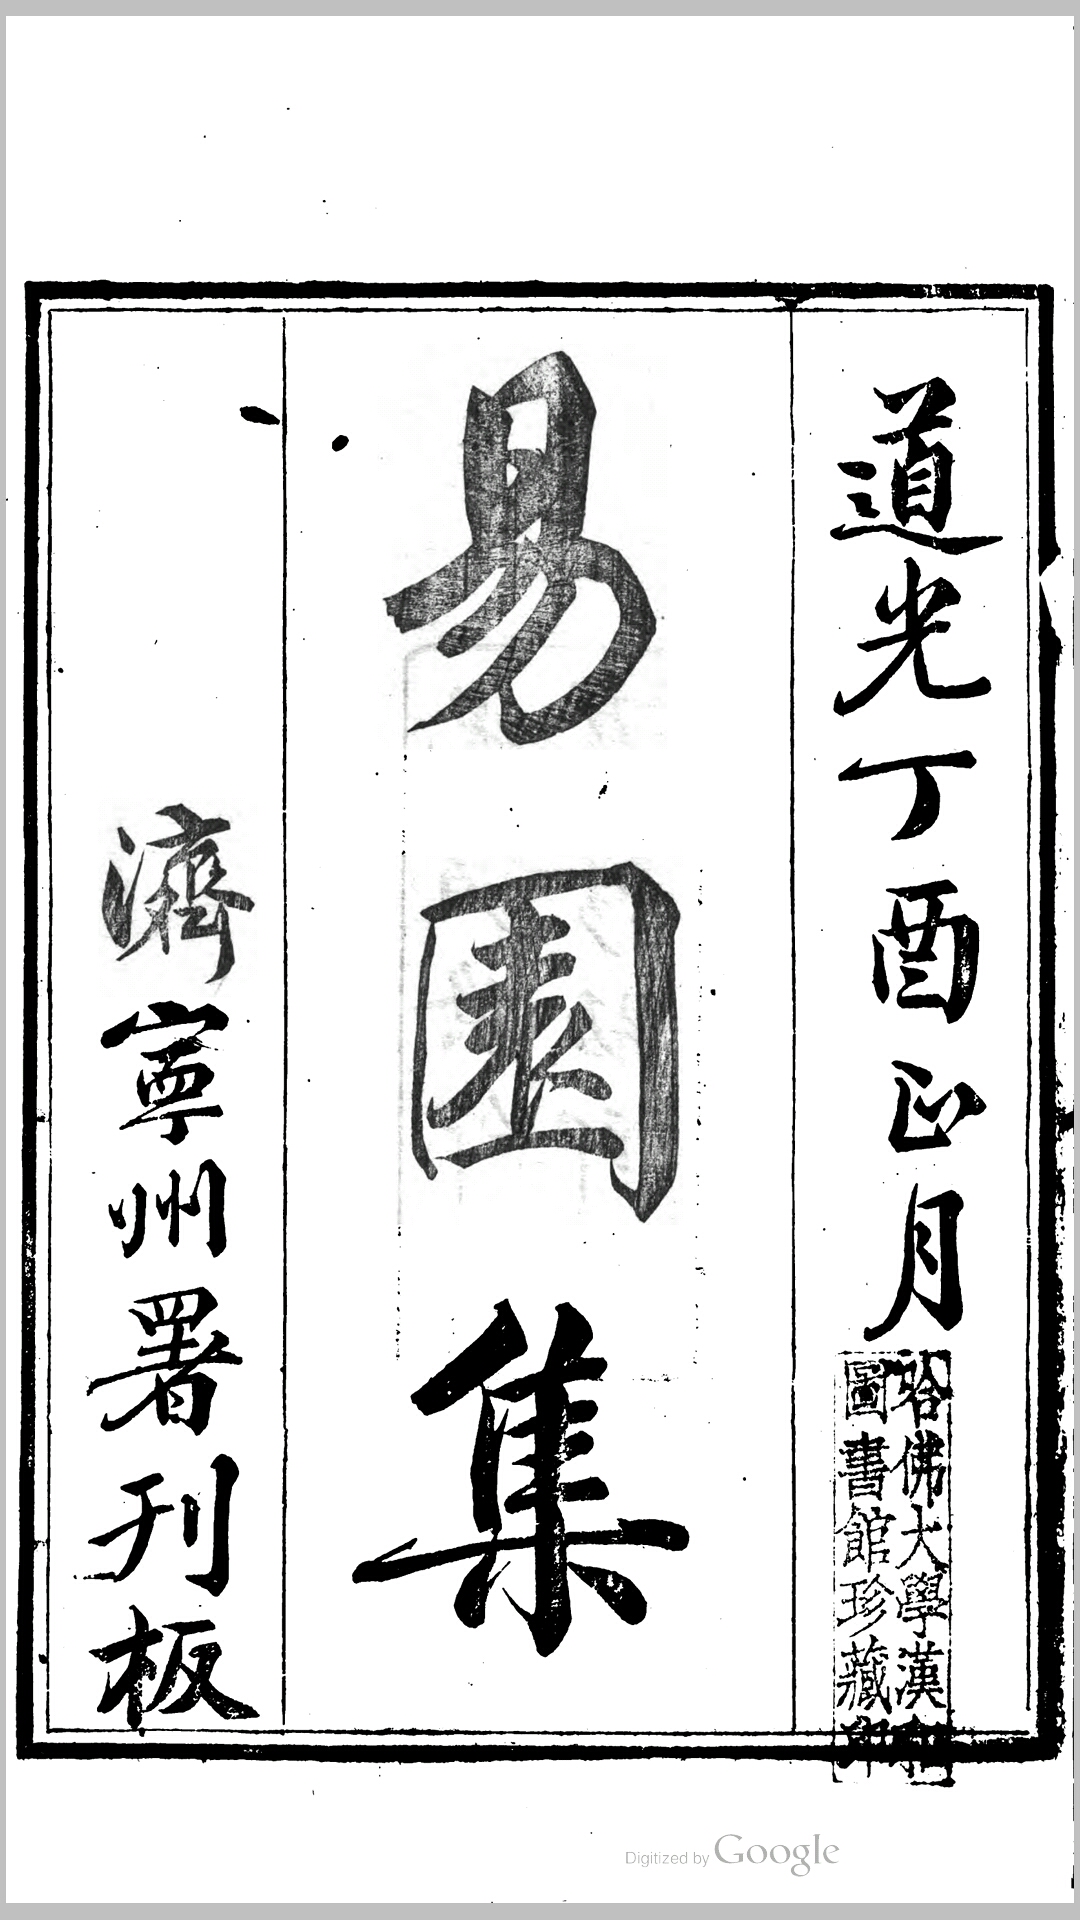 道光丁酉正月
哈佛大學漢和
圖書館珍藏印
易園集
濟寧州署刊板
Digitized by Google